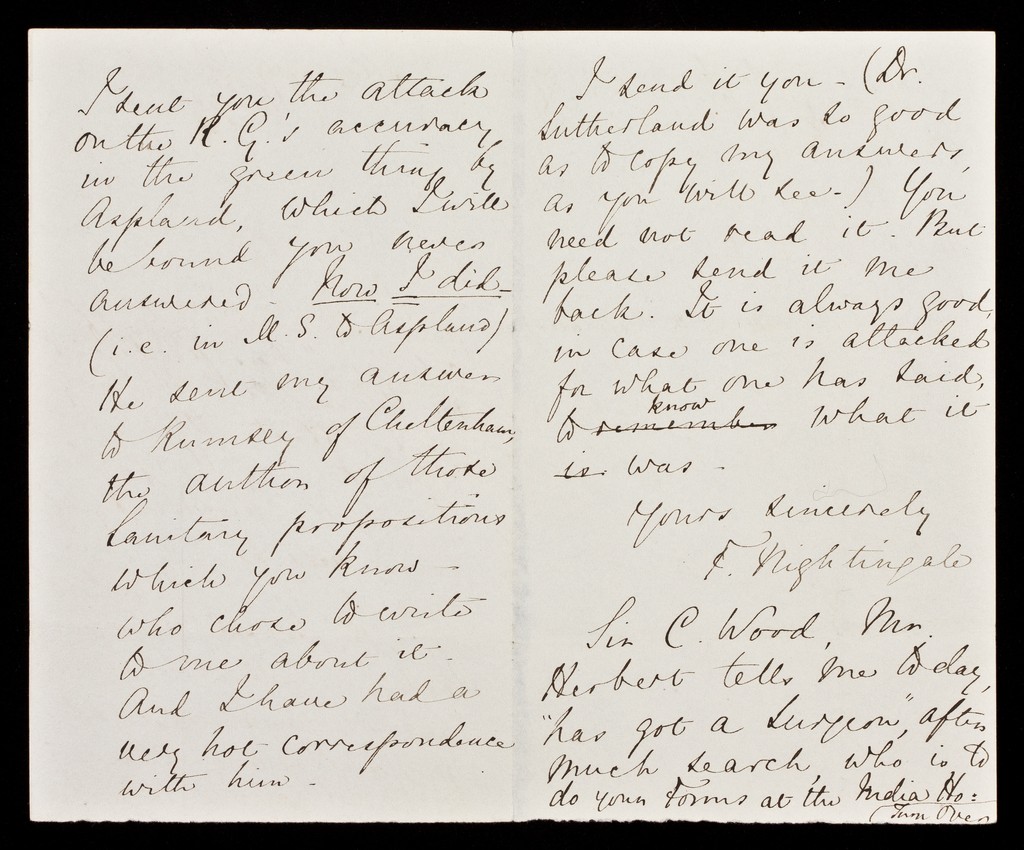 I sent you the attack
on the R. G.'s accuracy
in the green thing by
Aspland, which I will
be bound you never
answered - Now I did -
(i.e. in M.S. to Aspland)
He sent my answer
to Rumsey of Cheltenham,
the author of those
Sanitary propositions
which you know -
who chose to write
to me about it -
And I have had a
very hot correspondence
with him -
I send it you - (Dr.
Sutherland was so good
as to copy my answers,
as you will see -) You
need not read it. But
please send it me
back. It is always good,
in case one is attacked
for what one has said,
to remember know what it
is was -
Yours sincerely
F. Nightingale
Sir C. Wood, Mr.
Herbert tells me to day,
"has got a Surgeon", after
much search, who is to
do your Forms at the India Ho:
(Turn Over